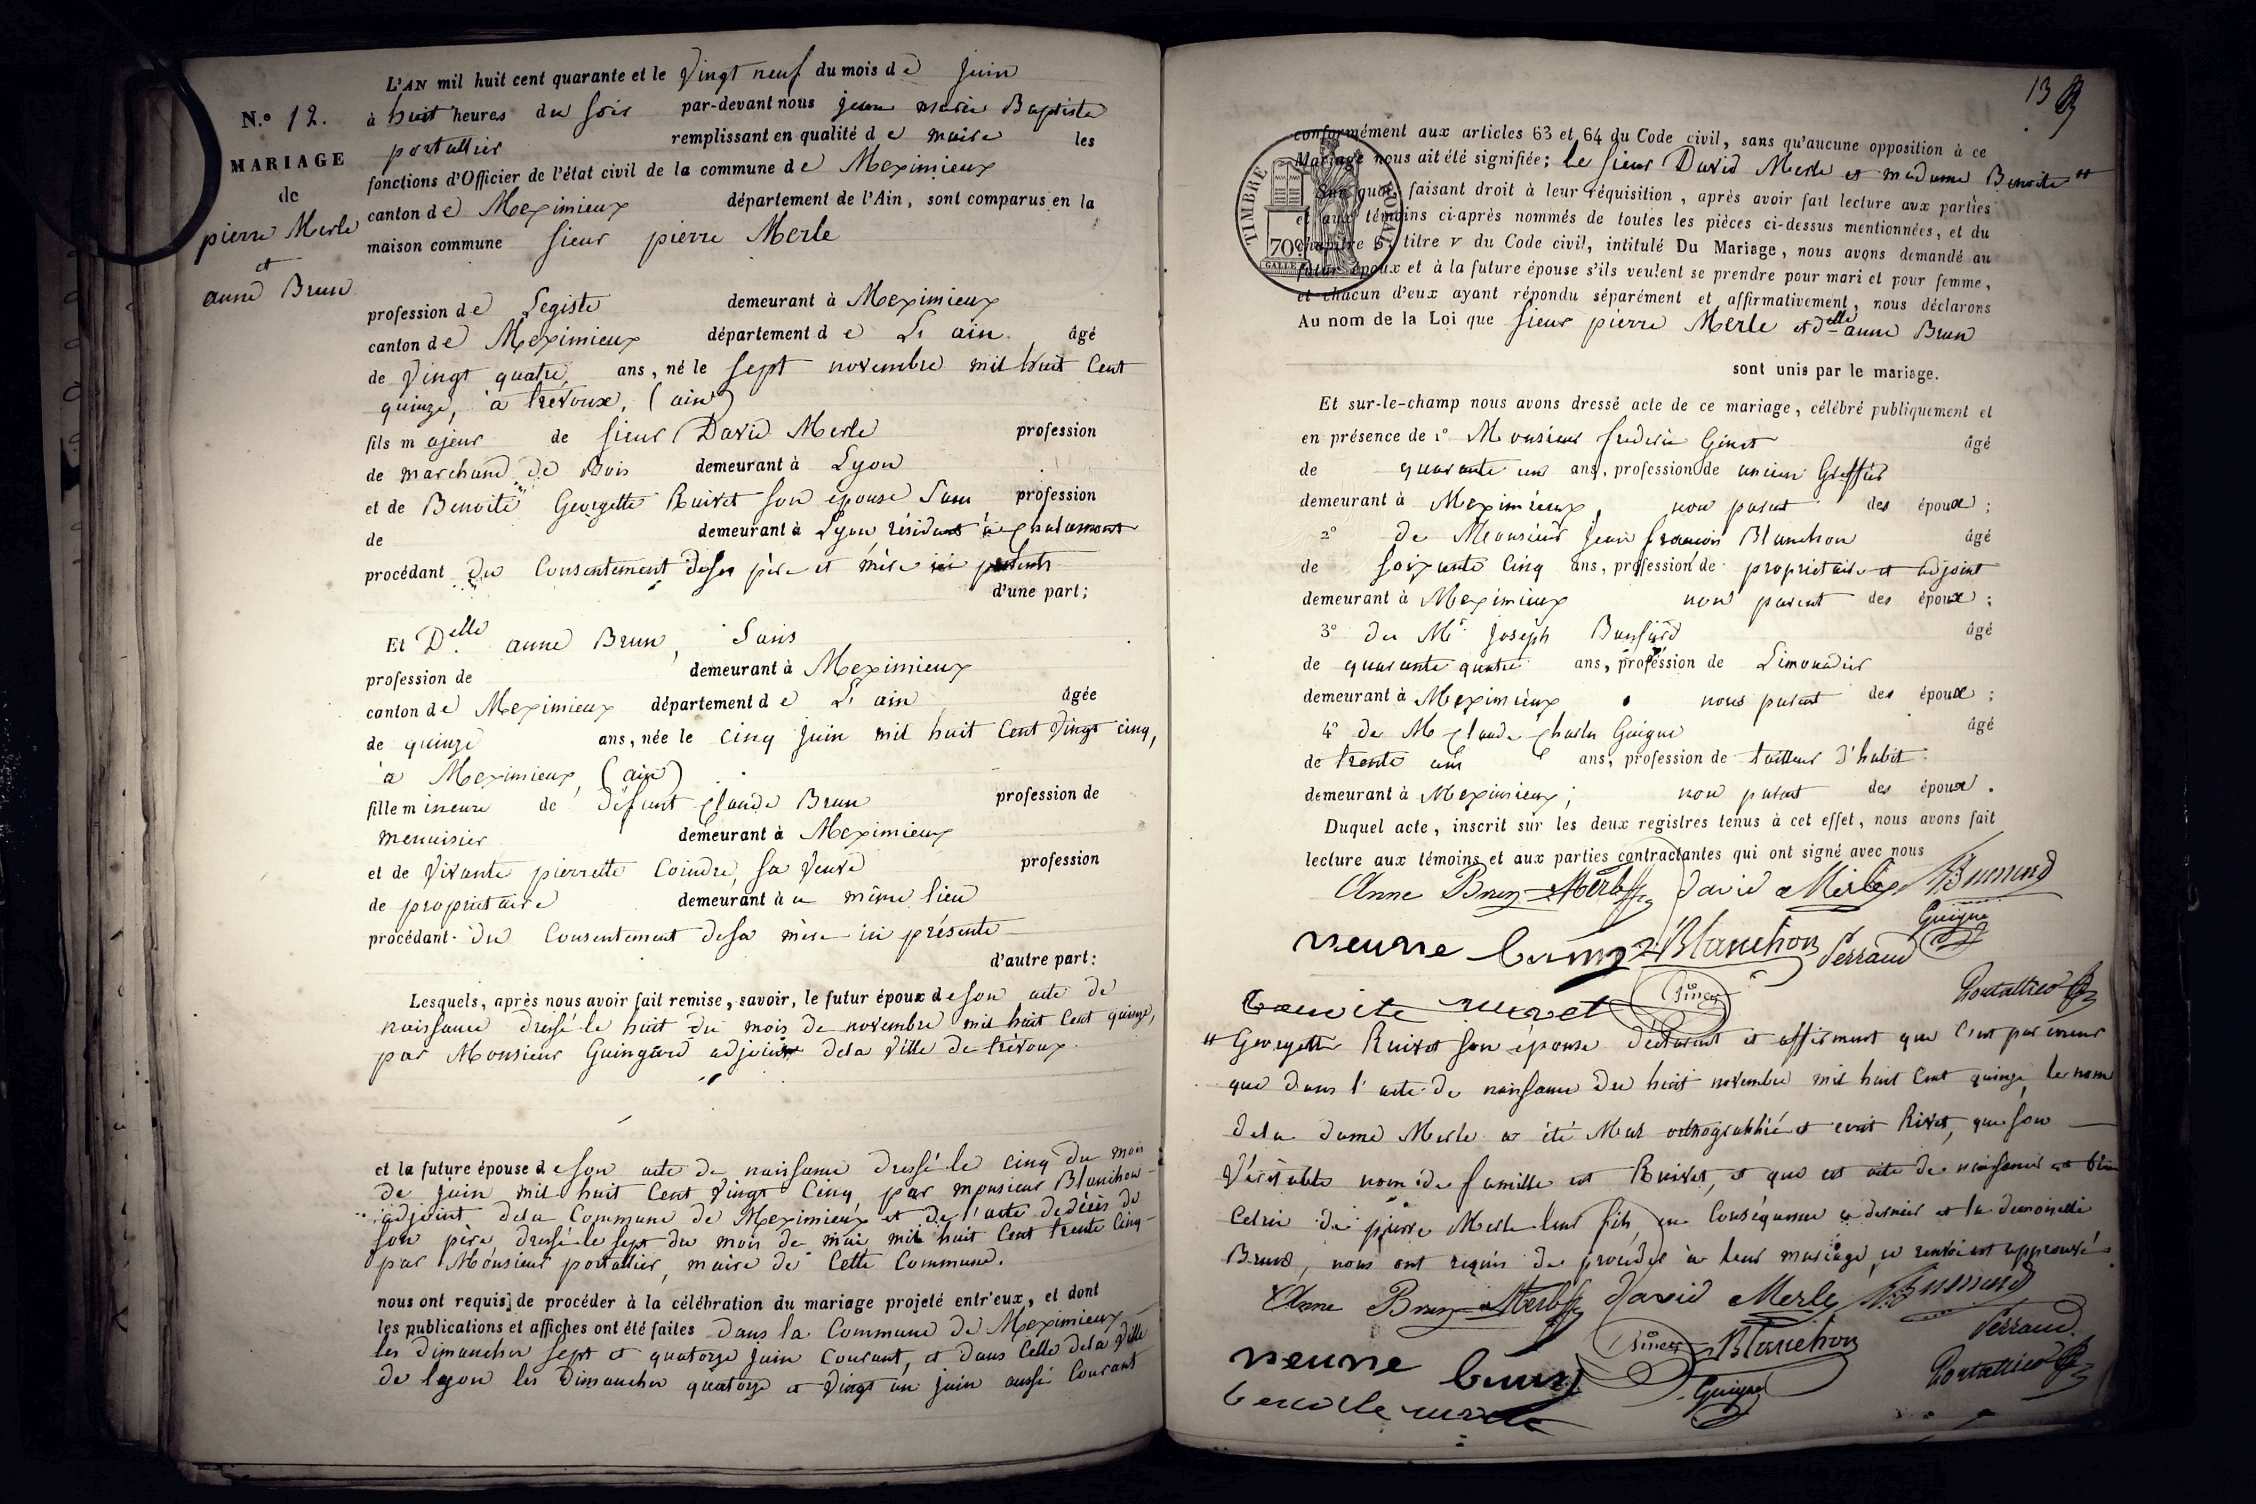 L'AN mil huit cent quarante et le Vingt neuf du mois de Juin
N.º 12.
à huit heures du soir par-devant nous jean marie Baptiste
portallier remplissant en qualité de maire les
MARIAGE
fonctions d'Officier de l'état civil de la commune de Meximieux
de
canton de Meximieux département de l'Ain, sont comparus en la
pierre Merle
maison commune sieur pierre Merle
et
anne Brun
profession de Legiste demeurant à Meximieux
canton de Meximieux département de L'ain âgé
de Vingt quatre ans, né le sept novembre mil huit Cent
quinze, à trévoux, (ain)
fils majeur de sieur David Merle profession
de marchand de Bois demeurant à Lyon
et de Benoite Georgette Ruivet son épouse Sans profession
de demeurant à Lyon résidant à chalamont
procédant du Consentement de ses père et mère ici présents
d'une part;
Et Delle anne Brun, Sans
profession de demeurant à Meximieux
canton de Meximieux département de L'ain âgée
de quinze ans, née le cinq juin mil huit Cent Vingt cinq,
à Meximieux, (ain)
fille mineure de défunt Claude Brun profession de
menuisier demeurant à Meximieux
et de Vivante pierrette Coindre, sa Veuve profession
de propriétaire demeurant à u même lieu
procédant du Consentement de sa mère ici présente
d'autre part:
Lesquels, après nous avoir fait remise, savoir, le futur époux de son acte de
naissance dressé le huit du mois de novembre mil huit Cent quinze,
par Monsieur Guingard adjoint de la Ville de trévoux.
et la future épouse de son acte de naissance dressé le cinq du mois
de juin mil huit Cent Vingt Cinq par monsieur Blanchon
adjoint de la Commune de Meximieux et de l'acte de décès de
son père dressé le sept du mois de mai mil huit Cent trente Cinq
par Monsieur portallier, maire de Cette Commune.
nous ont requis de procéder à la célébration du mariage projeté entr'eux, et dont
les publications et affiches ont été faites dans la Commune de Meximieux
les dimanches sept et quatorze juin Courant, et dans Celle de la Ville
de lyon les dimanches quatorze et Vingt un juin aussi Courant
13
conformément aux articles 63 et 64 du Code civil, sans qu'aucune opposition à ce
Mariage nous ait été signifiée; le sieur David Merle et madame Benoite "
Sur quoi, faisant droit à leur réquisition, après avoir fait lecture aux parties
et aux témoins ci-après nommés de toutes les pièces ci-dessus mentionnées, et du
chapitre 6, titre v du Code civil, intitulé Du Mariage, nous avons demandé au
futur époux et à la future épouse s'ils veulent se prendre pour mari et pour femme,
et chacun d'eux ayant répondu séparément et affirmativement, nous déclarons
Au nom de la Loi que sieur pierre Merle et delle anne Brun
TIMBRE ROYAL
70c
sont unis par le mariage.
Et sur-le-champ nous avons dressé acte de ce mariage, célébré publiquement et
en présence de 1º Monsieur frédéric Ginet âgé
de quarante un ans, profession de ancien Greffier
demeurant à Meximieux, non parent des époux;
2º de Monsieur Jean françois Blanchon âgé
de soixante Cinq ans, profession de propriétaire et adjoint
demeurant à Meximieux non parent des époux;
3º de Mr joseph âgé
de quarante quatre ans, profession de Limonadier
demeurant à Meximieux non parent des époux;
4º de M Claude Charles Guigue âgé
de trente ans, profession de tailleur d'habit
demeurant à Meximieux; non parent des époux.
Duquel acte, inscrit sur les deux registres tenus à cet effet, nous avons fait
lecture aux témoins et aux parties contractantes qui ont signé avec nous
Anne Brun Merle David Merle
Guigue
Blanchon Perraud
Ginet Portallier
" Georgette Ruivet son épouse déclarent et affirment que c'est par erreur
que dans l'acte de naissance du huit novembre mil huit Cent quinze, le nom
de la dame Merle a été Mal orthographié et écrit Rivet, que son
Véritable nom de famille est Ruivet, et que cet acte de naissance est bien
Celui de pierre Merle leur fils, en Conséquence ce dernier et la demoiselle
Brun, nous ont requis de procéder à leur mariage, ce renvoi est approuvé.
Anne Brun Merle David Merle
Ginet Blanchon Perraud
Guigue Portallier